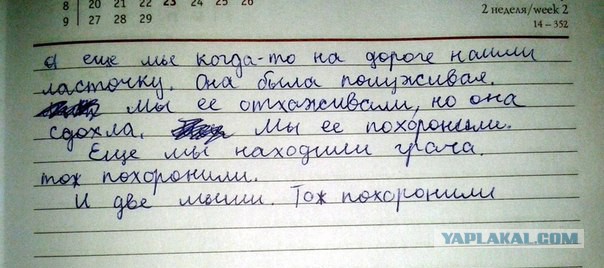 8 20 21 22 23 24 25 26
9 27 28 29
2 неделя/week 2
14 – 352
А еще мы когда-то на дороге нашли
ласточку. Она была полуживая.
Мы ее отхаживали, но она
сдохла. Мы ее похоронили.
Еще мы находили грача.
тож похоронили.
И две мыши. Тож похоронили
YAPLAKAL.COM